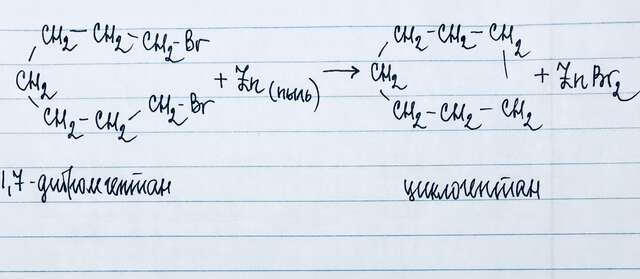 CH₂ – CH₂ – CH₂ – Br CH₂ – CH₂ – CH₂
CH₂ + Zn (пыль) → CH₂ + ZnBr₂
CH₂ – CH₂ – CH₂ – Br CH₂ – CH₂ – CH₂
1,7-дибромгептан циклогептан